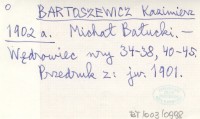 BARTOSZEWICZ Kazimierz
1902 a. Michał Bałucki. —
Wędrowiec nry 34-38, 40-45.
Przedruk z: jw. 1901.